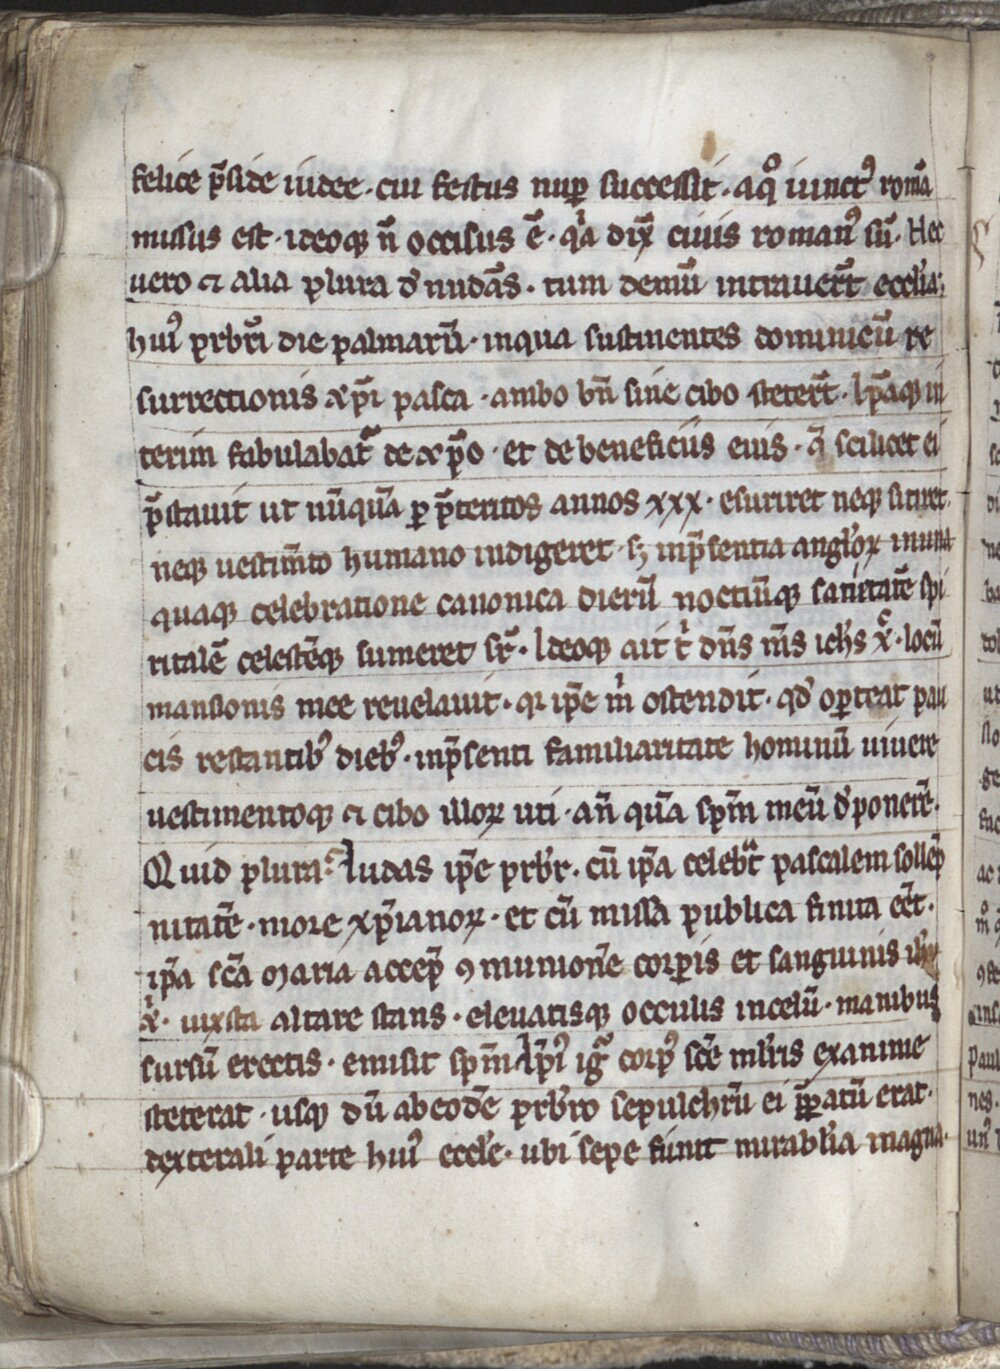 felice p̄side iudee · cui festus nup̱ successit · aqͦ iunctꝰ romā
missus est · ideoqꝫ n̄ occisus ē · qͥa dix̄ ciuis romanꝰ sū · Hec
uero ⁊ alia plura d̓nudās · tum demū intrauer̄t eccl̓ia;
huiꝰ prbr̄i die palmarū · inqua sustinentes dominicū re
surrectionis xp̄i pasca · ambo bn̄ sine cibo steter̄t · Ip̄aqꝫ in
terim fabulabat᷑ de xp̄o · et de beneficiis eius · q̄ scilicet ei
p̄stauit ut nūquā ꝑ p̄teritos annos xxx · esuriret neqꝫ sitiret
neqꝫ uestim̄to humano indigeret · sꝫ inp̄sentia angl̓oꝝ inuna
quaqꝫ celebratione canonica dierū noctiūqꝫ satietatē spi
ritalē celestēqꝫ sumeret sr̄ · Ideoqꝫ ait tͥ dn̄s m̄s ieh̓s x̄ · locū
mansionis mee reuelauit · qꝛ ip̄e mͥ ostendit · qd̓ oꝑteat pau
cis restantibꝰ diebꝰ · inp̄senti familiaritate hominū uiuere
uestimentoqꝫ ⁊ cibo illoꝝ uti · an̄ quā sp̄m meū d̓ponerē ·
Quid plura? Iudas ip̄e prb̓r · cū ip̄a celebͣt pascalem sollep̄
nitatē · more xp̄ianoꝝ · et cū missa publica finita eēt ·
ip̄a sc̄a maria accep̄ ꝯmunionē corꝑis et sanguinis ih̓u
xͥ · iuxsta altare stans · eleuatisqꝫ occulis incelū · manibus
sursū erectis · emisit sp̄m Ip̄iꝰ igͬ corpꝰ sc̄e mr̓is exanime
steterat · usqꝫ dū abeodē prb̓ro sepulchrū ei p̄ꝑatū erat ·
dexterali parte huiꝰ eccl̓e · ubi sepe fiunt mirabl̓ia magna ·